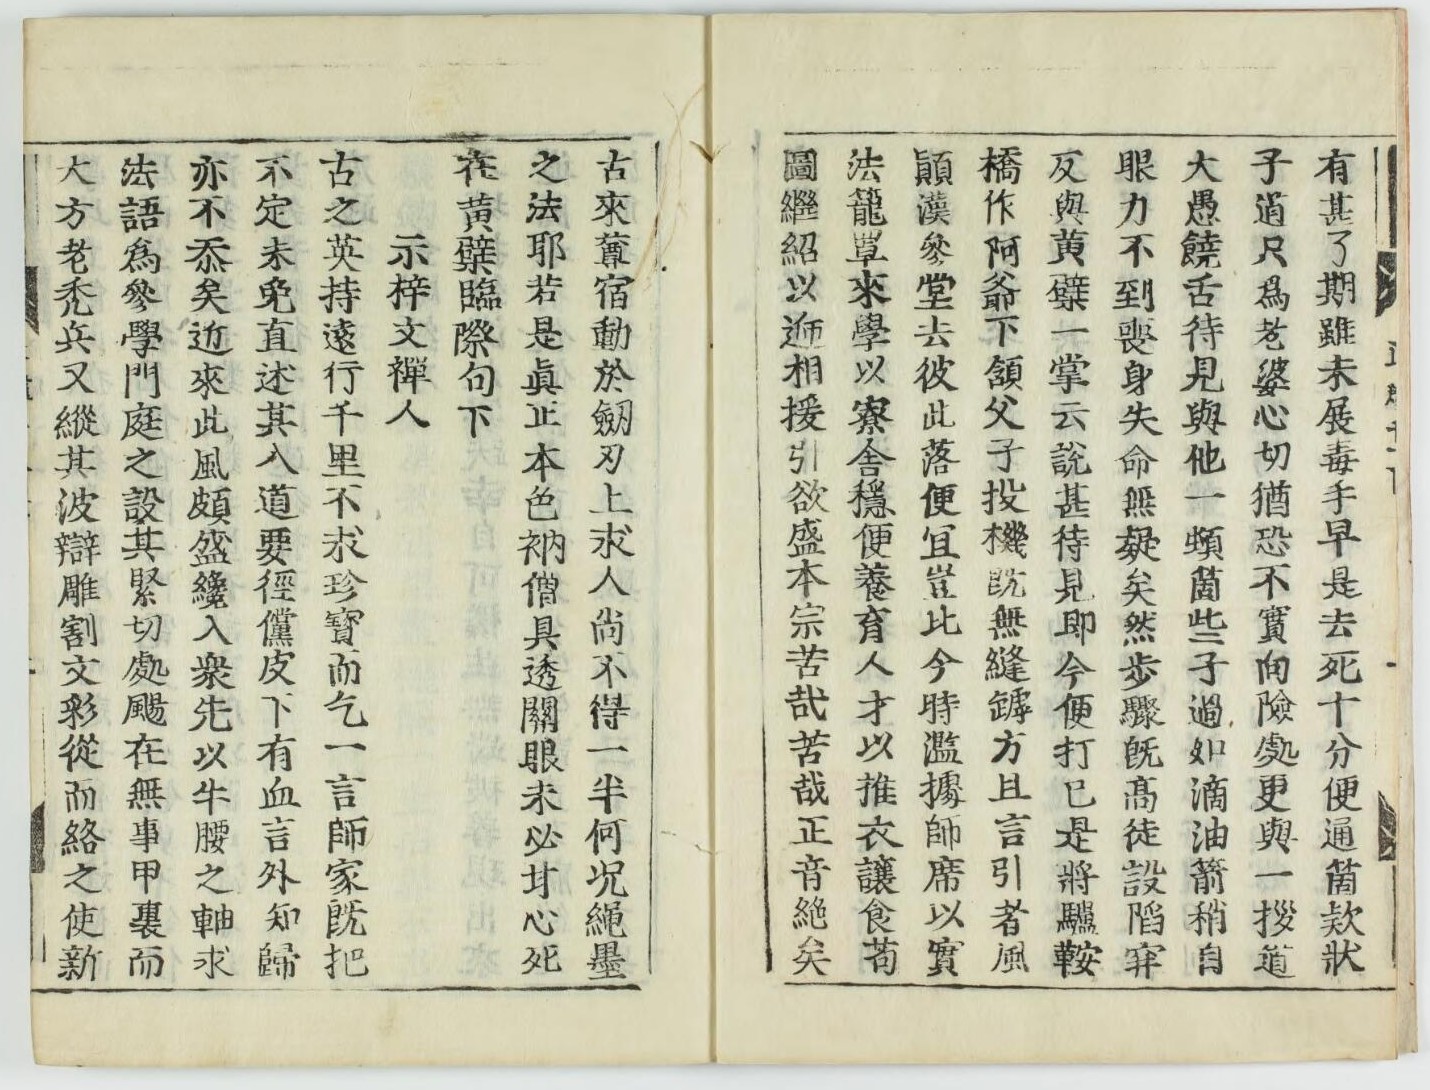 有甚了期雖未展毒手早是去死十分便通箇欵狀
子道只爲老婆心切猶恐不實向險處更與一拶道
大愚饒舌待見與他一頓箇些子過如滴油箭稍自
眼力不到喪身失命無疑矣然步驟旣高徒設陷穽
反與黄檗一掌云說甚待見即今便打已是將驢鞍
橋作阿爺下頷父子投機旣無縫罅方且言引者風
顚漢參堂去彼此落便冝豈比今時濫據師席以實
法籠罩來學以寮舎穩便養育人才以推衣讓食苟
圖繼紹以遞相援引欲盛本宗苦哉苦哉正音絶矣
古來尊宿動於劒刃上求人尚不得一半何况繩墨
之法耶若是眞正本色衲僧具透關眼未必甘心死
在黄檗臨際句下
示梓文禪人
古之英持遠行千里不求珍寳而乞一言師家旣把
不定未免直述其入道要徑儻皮下有血言外知歸
亦不忝矣近來此風頗盛纔入衆先以牛腰之軸求
法語爲參學門庭之設其緊切處颺在無事甲裏而
大方老禿兵又縱其波辯雕割文彩從而絡之使新